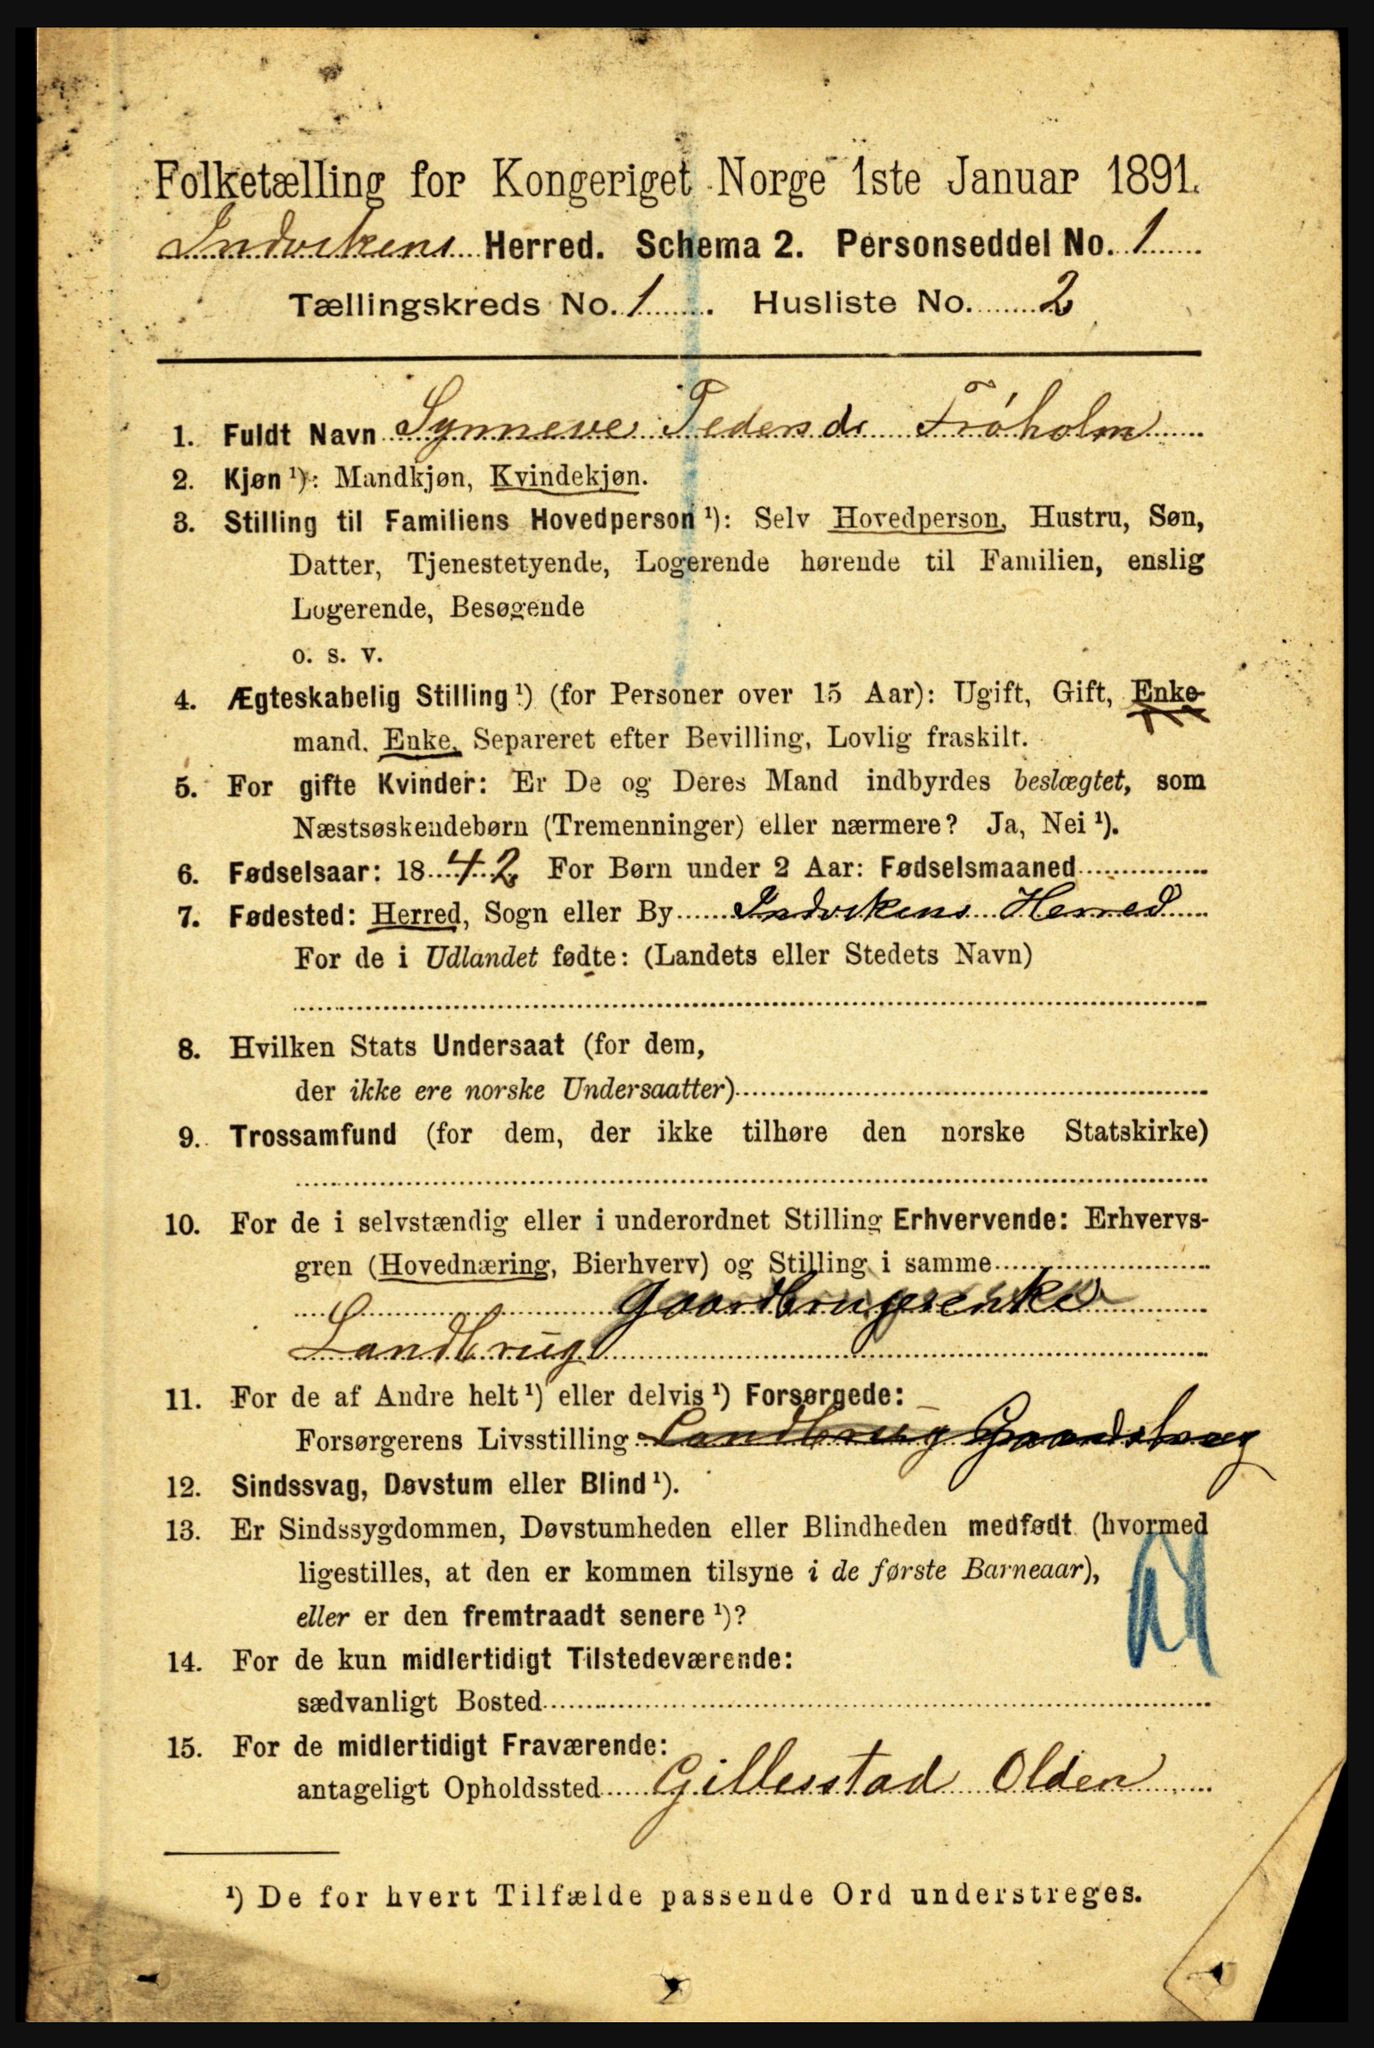 Folketælling for Kongeriget Norge 1ste Januar 1891.
Indvikens Herred. Schema 2. Personseddel No. 1
Tællingskreds No. 1. Husliste No. 2
1. Fuldt Navn Synneve Pedersdr Fróholm
2. Kjøn ¹): Mandkjøn, Kvindekjøn.
3. Stilling til Familiens Hovedperson ¹): Selv Hovedperson, Hustru, Søn,
Datter, Tjenestetyende, Logerende hørende til Familien, enslig
Logerende, Besøgende
o. s. v.
4. Ægteskabelig Stilling ¹) (for Personer over 15 Aar): Ugift, Gift, Enke-
mand, Enke, Separeret efter Bevilling, Lovlig fraskilt.
5. For gifte Kvinder: Er De og Deres Mand indbyrdes beslægtet, som
Næstsøskendebørn (Tremenninger) eller nærmere? Ja, Nei ¹).
6. Fødselsaar: 1842 For Børn under 2 Aar: Fødselsmaaned
7. Fødested: Herred, Sogn eller By Indvikens Herred
For de i Udlandet fødte: (Landets eller Stedets Navn)
8. Hvilken Stats Undersaat (for dem,
der ikke ere norske Undersaatter)
9. Trossamfund (for dem, der ikke tilhøre den norske Statskirke)
10. For de i selvstændig eller i underordnet Stilling Erhvervende: Erhvervs-
gren (Hovednæring, Bierhverv) og Stilling i samme
Gaardbrugerenke
Landbrug
11. For de af Andre helt ¹) eller delvis ¹) Forsørgede:
Forsørgerens Livsstilling Landbrug Gaardsbrug
12. Sindssvag, Døvstum eller Blind ¹).
13. Er Sindssygdommen, Døvstumheden eller Blindheden medfødt (hvormed
ligestilles, at den er kommen tilsyne i de første Barneaar),
eller er den fremtraadt senere ¹)?
14. For de kun midlertidigt Tilstedeværende:
sædvanligt Bosted
15. For de midlertidigt Fraværende:
antageligt Opholdssted Gillesstad Olden
¹) De for hvert Tilfælde passende Ord understreges.